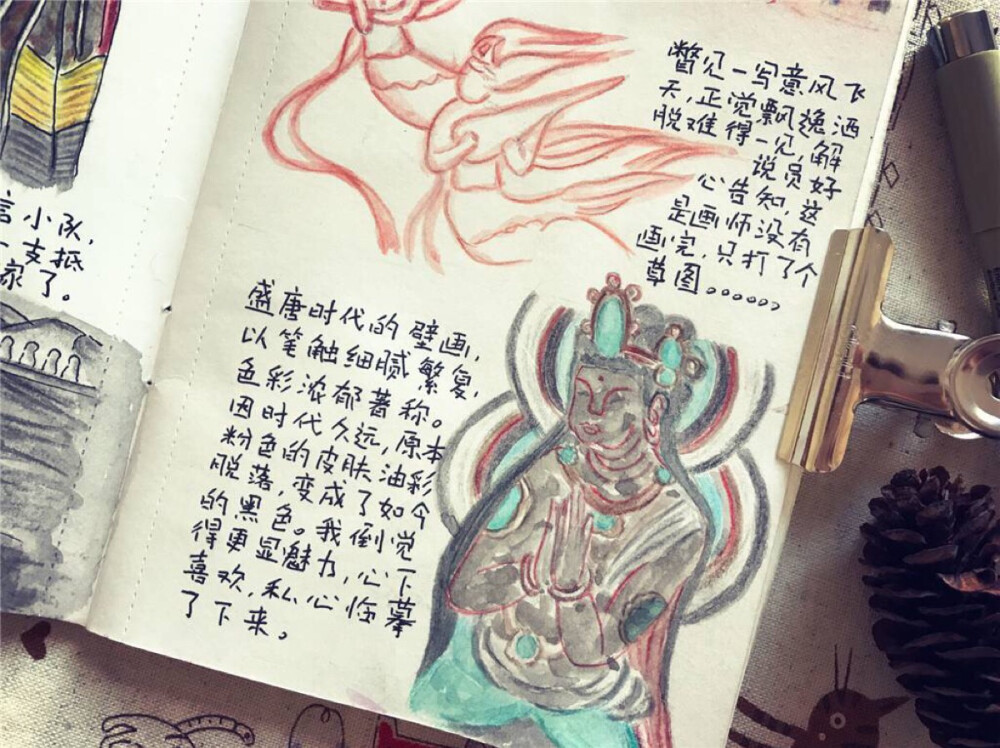 言小队,
一支抵
家了。
瞥见一写意风飞
天,正觉飘逸洒
脱难得一见,解
说员好
心告知,这
是画师没有
画完,只打了个
草图。。。。。。
盛唐时代的壁画,
以笔触细腻繁复,
色彩浓郁著称。
因时代久远,原本
粉色的皮肤油彩
脱落,变成了如今
的黑色。我倒觉
得更显魅力,心下
喜欢,私心临摹
了下来。